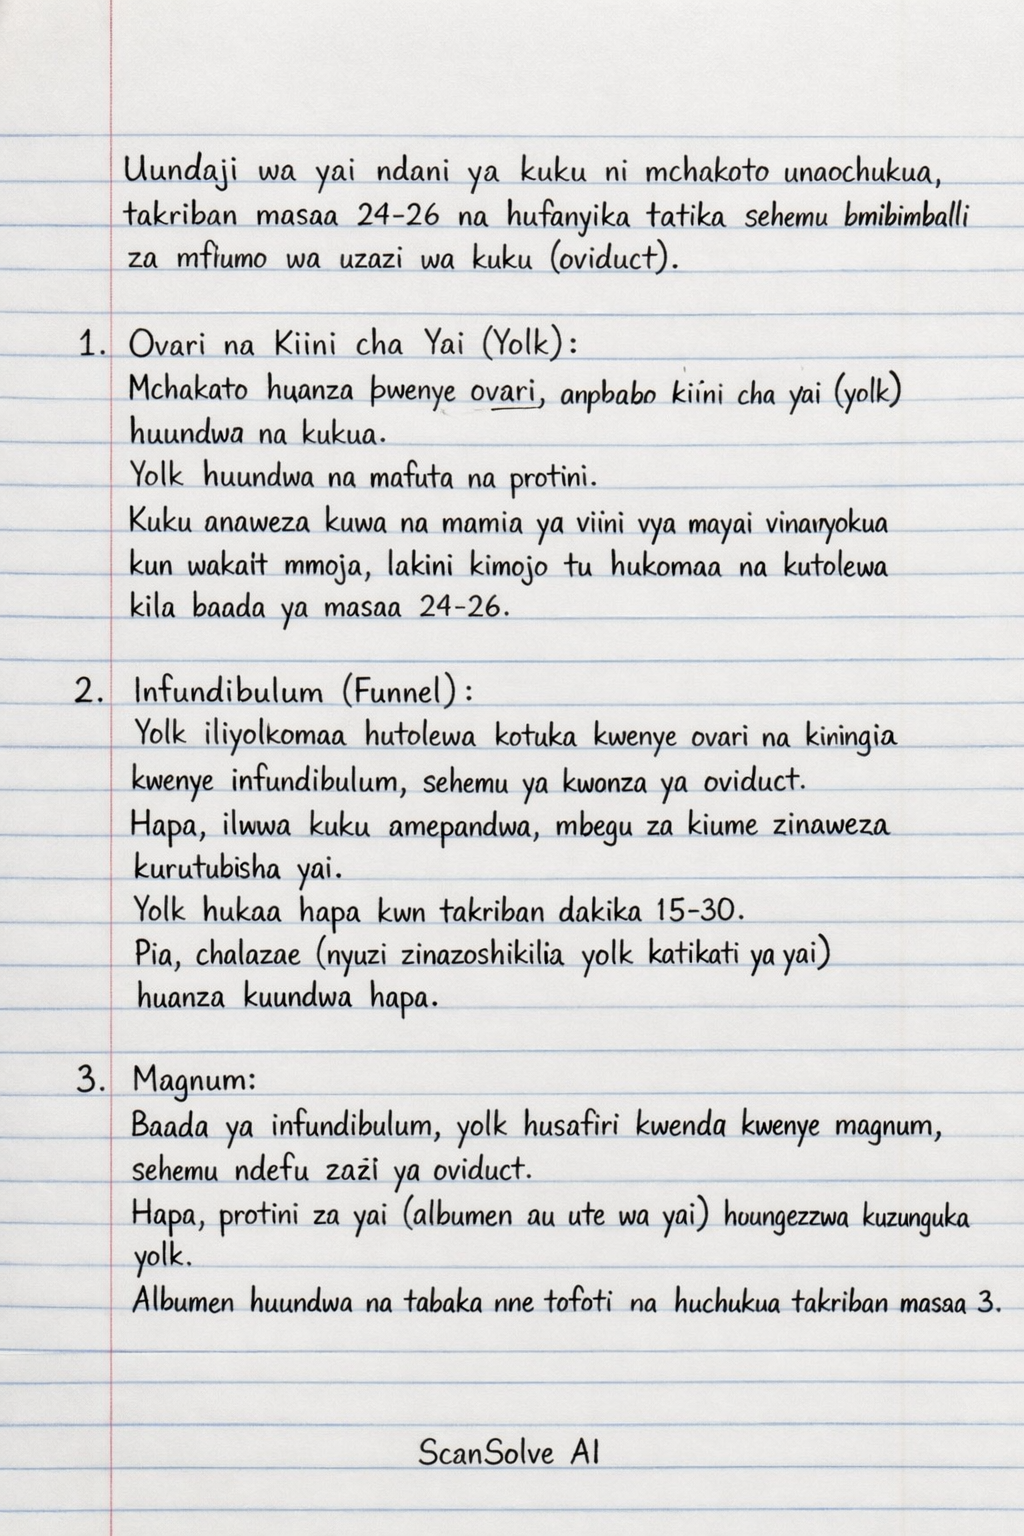 Uundaji wa yai ndani ya kuku ni mchakato unaochukua,
takriban masaa 24-26 na hufanyika tatika sehemu bmibimballi
za mflumo wa uzazi wa kuku (oviduct).
1. Ovari na Kiini cha Yai (Yolk):
Mchakato huanza þwenye ovari, anpbabo kiini cha yai (yolk)
huundwa na kukua.
Yolk huundwa na mafuta na protini.
Kuku anaweza kuwa na mamia ya viini vya mayai vinaryokua
kun wakait mmoja, lakini kimojo tu hukomaa na kutolewa
kila baada ya masaa 24-26.
2. Infundibulum (Funnel):
Yolk iliyolkomaa hutolewa kotuka kwenye ovari na kiningia
kwenye infundibulum, sehemu ya kwonza ya oviduct.
Hapa, ilwwa kuku amepandwa, mbegu za kiume zinaweza
kurutubisha yai.
Yolk hukaa hapa kwn takriban dakika 15-30.
Pia, chalazae (nyuzi zinazoshikilia yolk katikati ya yai)
huanza kuundwa hapa.
3. Magnum:
Baada ya infundibulum, yolk husafiri kwenda kwenye magnum,
sehemu ndefu zażi ya oviduct.
Hapa, protini za yai (albumen au ute wa yai) houngezzwa kuzunguka
yolk.
Albumen huundwa na tabaka nne tofoti na huchukua takriban masaa 3.
ScanSolve AI